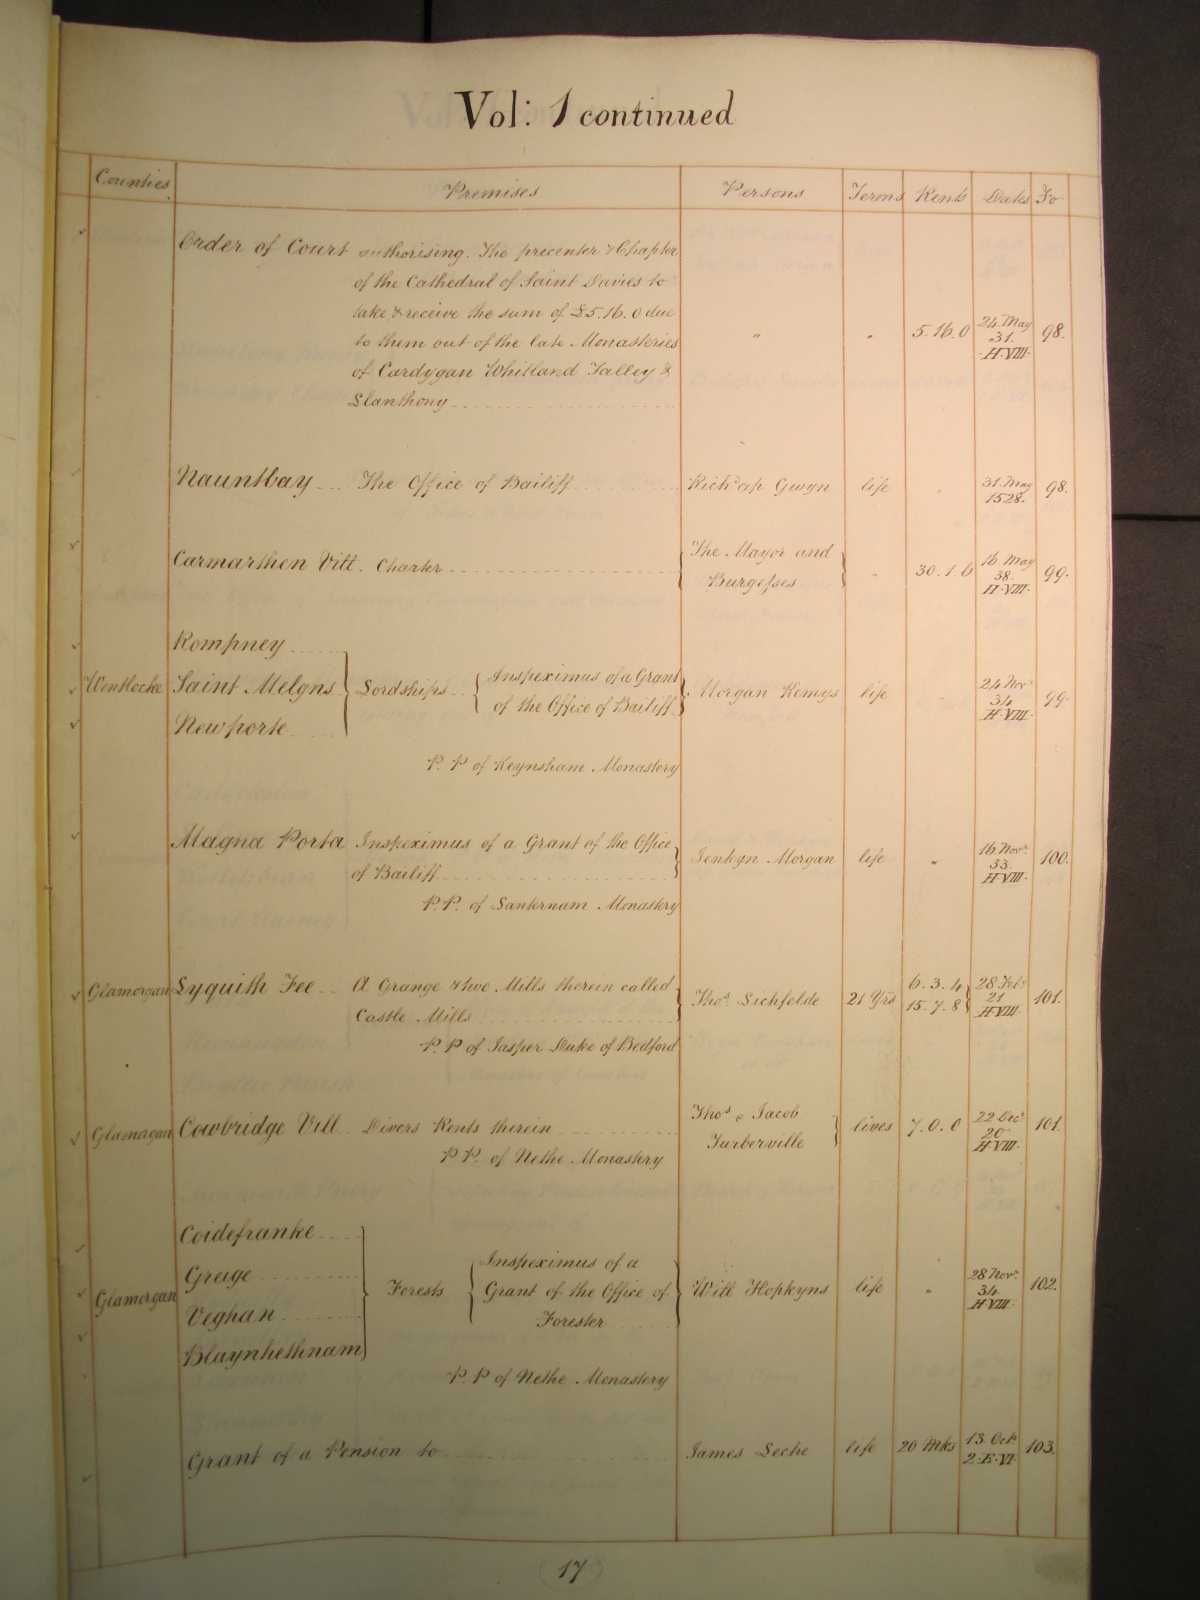 Vol: 1 continued
Counties Premises Persons Terms Rents Dates Fo
Order of Court authorising. The precenter & Chapter
of the Cathedral of Saint Davies to
take & receive the sum of £5.16.0 due
to them out of the late Monasteries " " 5.16.0 24. May 31. H.VIII. 98.
of Cardygan Whitland Talley &
Llanthony
Nauntbay The Office of Bailiff Richd ap Gwyn life " 31. May 1528. 98.
Carmarthen Vill. Charter The Mayor and Burgesses " 30.1.6 16. May 38. H.VIII. 99.
Rompney
Wentlocke Saint Melgns Lordships Inspeximus of a Grant of the Office of Bailiff Morgan Kemys life 24 Novr 34 H.VIII. 99.
Newporte
P. P of Keynsham Monastery
Magna Porta Inspeximus of a Grant of the Office
of Bailiff Jenkyn Morgan life " 16 Novr. 33. H.VIII. 100.
P.P. of Lanternam Monastery
Glamorgan Lyquith Fee A Grange & two Mills therein called
Castle Mills Thos. Lichfelde 21 Yrs 6.3.4 15.7.8 28 Feby 21 H.VIII. 101.
P. P of Jasper Duke of Bedford
Glamorgan Cowbridge Vill Divers Rents therein Thos & Jacob Turberville lives 7.0.0 22 Decr 20 H.VIII. 101.
P P. of Nethe Monastery
Coidefranke
Greige
Glamorgan Veghan Forests Inspeximus of a Grant of the Office of Forester Will Hopkyns life " 28 Novr. 34 H.VIII. 102.
Blaynhethnam
P. P of Nethe Monastery
Grant of a Pension to James Leche life 20 Mks 13. Octr 2.E.VI. 103.
17